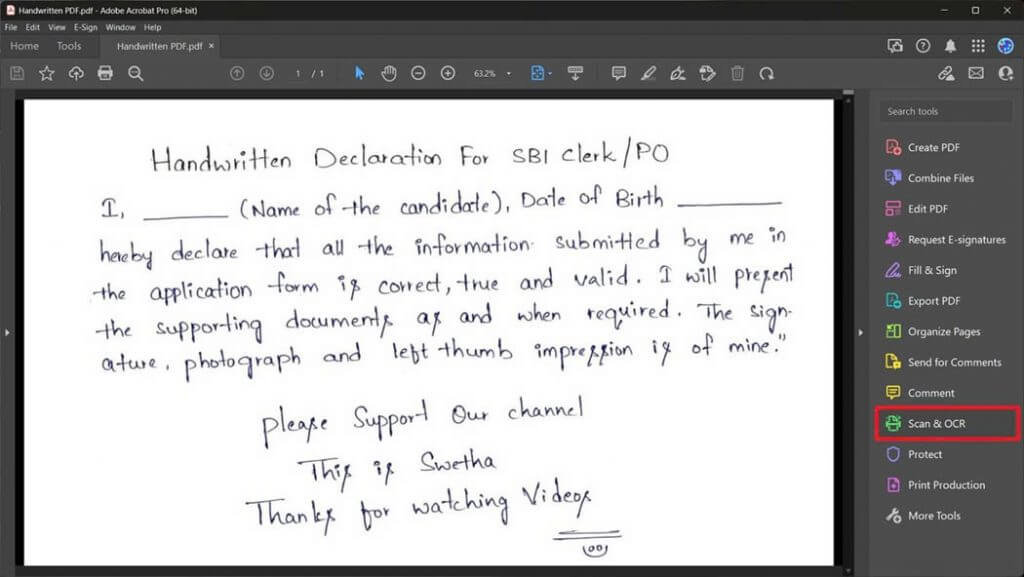 Handwritten PDF.pdf - Adobe Acrobat Pro (64-bit)
File Edit View E-Sign Window Help
Home Tools Handwritten PDF.pdf ×
1 / 1 63.2%
Handwritten Declaration For SBI Clerk/PO
I, ________ (Name of the candidate), Date of Birth ________
hereby declare that all the information submitted by me in
the application form is correct, true and valid. I will present
the supporting documents as and when required. The sign-
ature, photograph and left thumb impression is of mine."
please Support Our channel
This is Swetha
Thanks for watching Videos
Search tools
Create PDF
Combine Files
Edit PDF
Request E-signatures
Fill & Sign
Export PDF
Organize Pages
Send for Comments
Comment
Scan & OCR
Protect
Print Production
More Tools